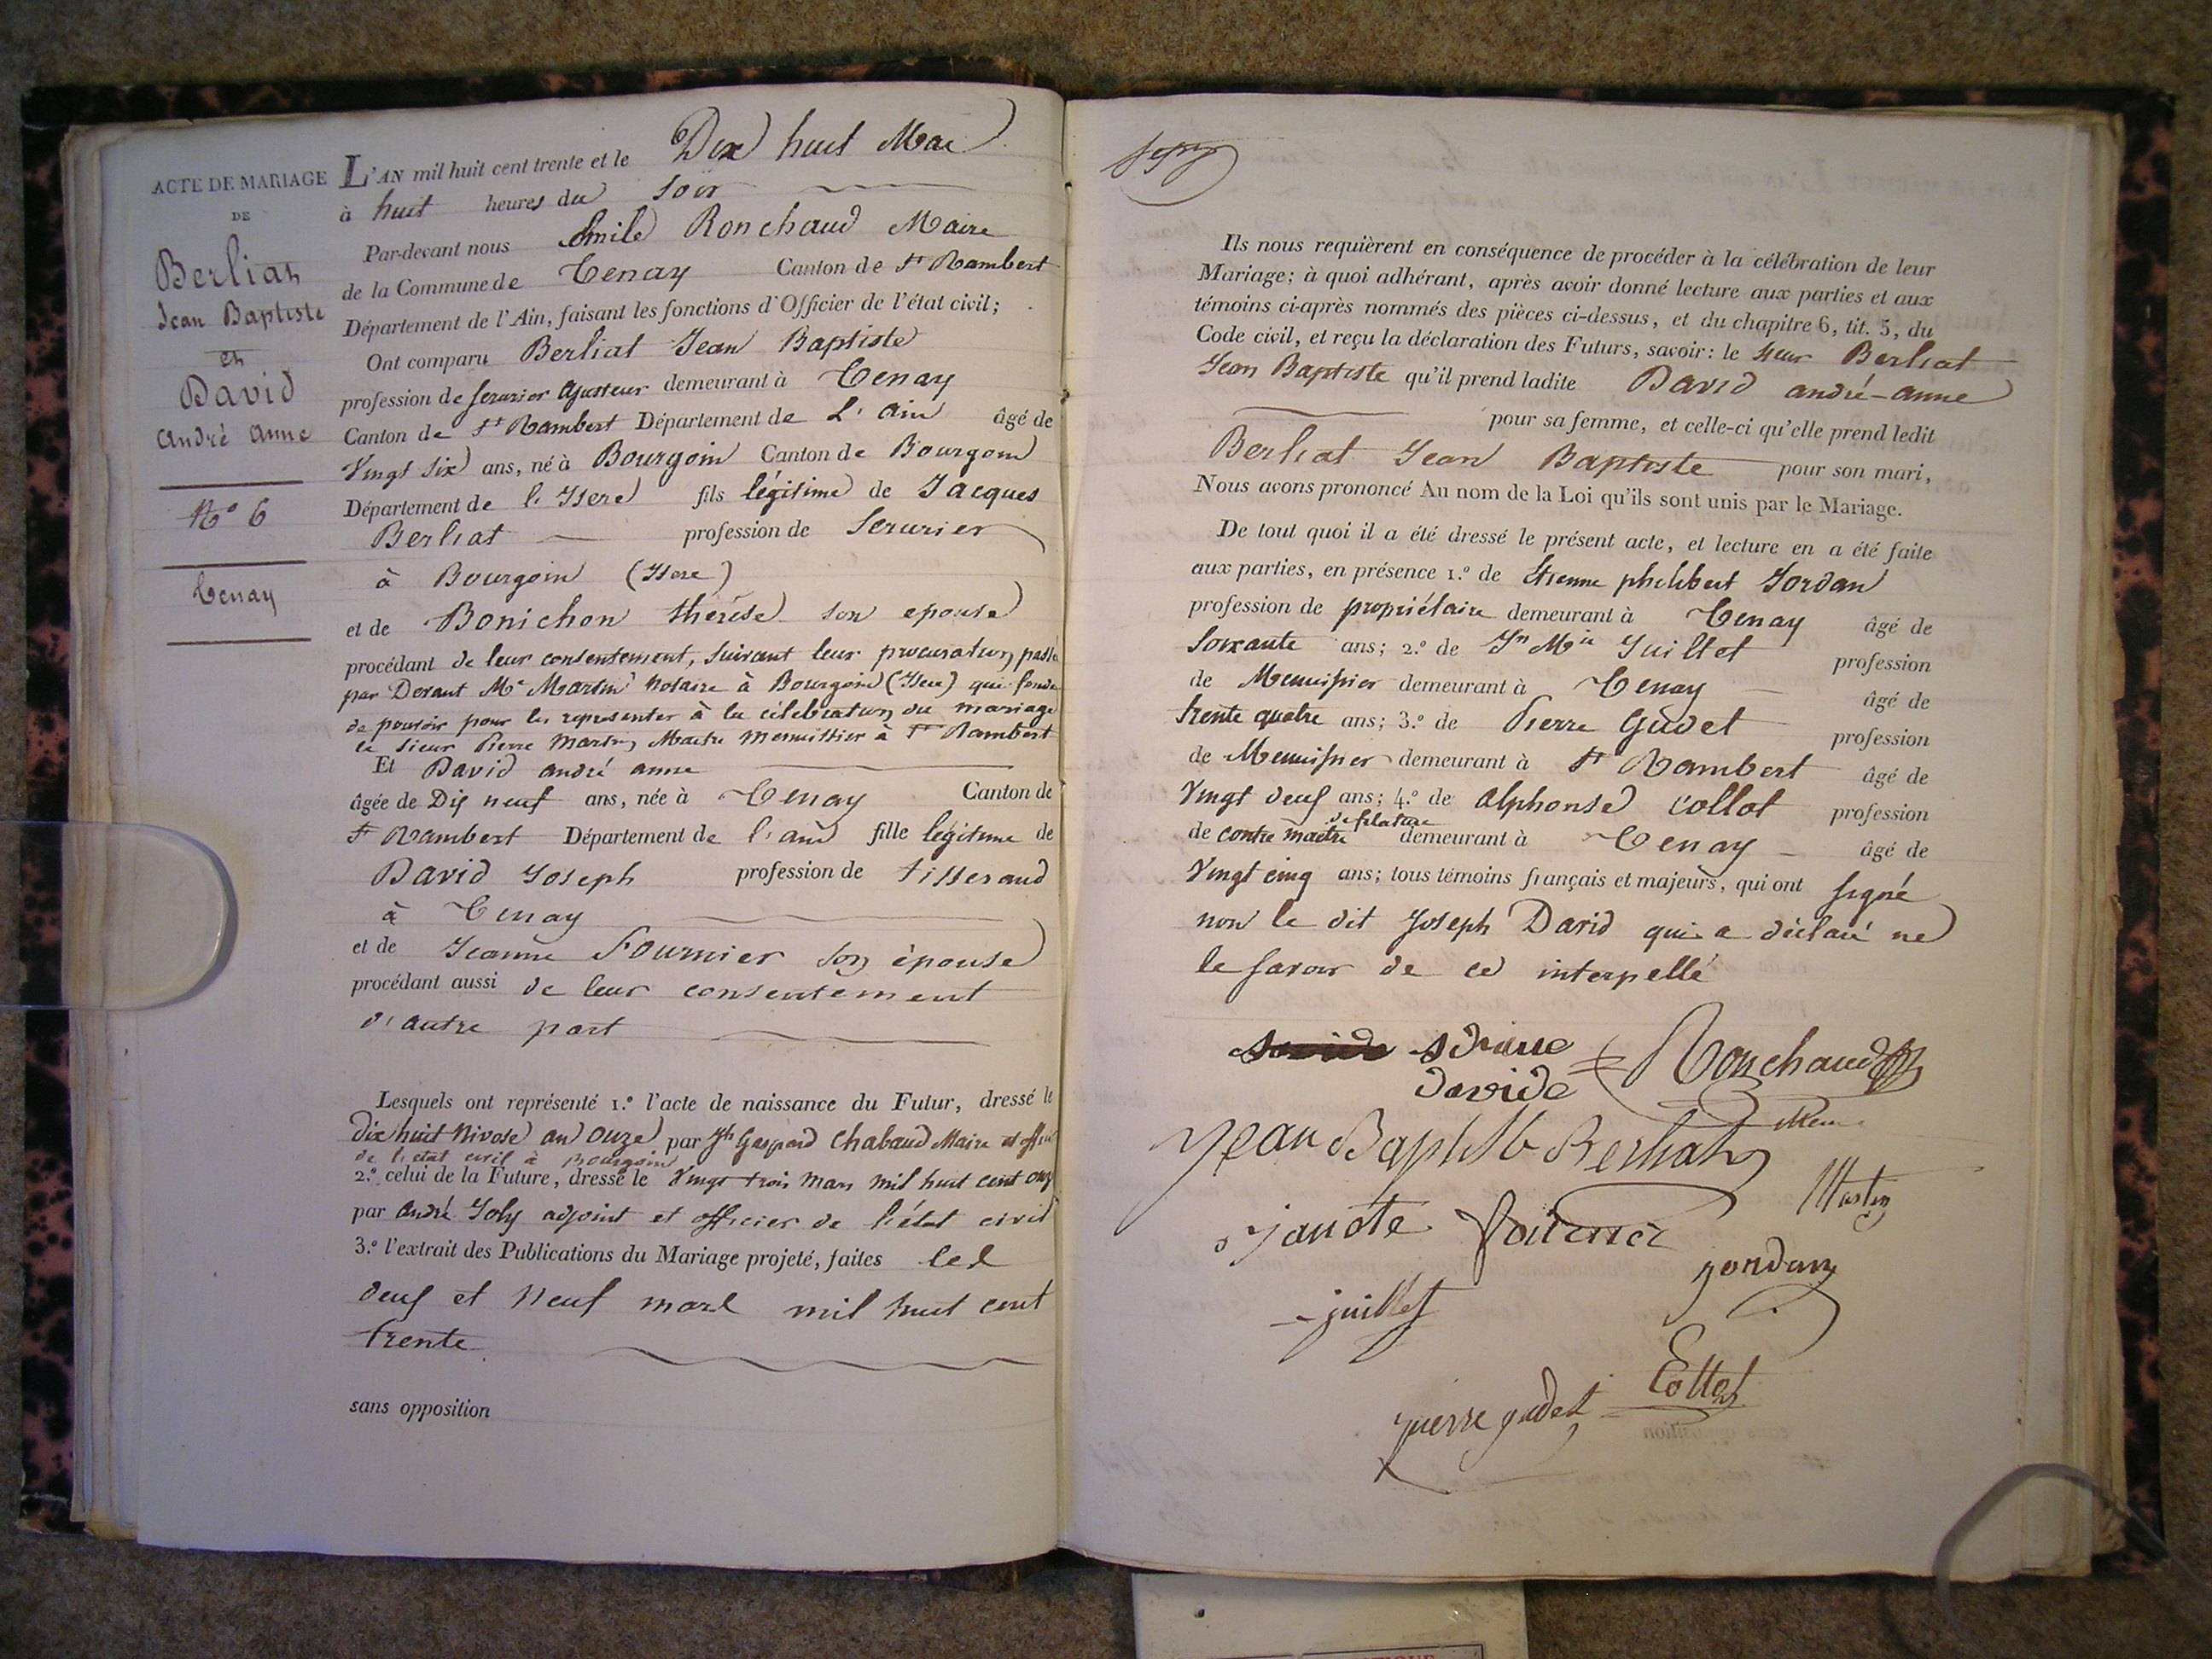 ACTE DE MARIAGE
DE
Berliat
Jean Baptiste
et
David
André Anne
N° 6
Tenay
L'AN mil huit cent trente et le Dix huit Mai
à huit heures du soir
Par-devant nous Emile Ronchaud Maire
de la Commune de Tenay Canton de St Rambert
Département de l'Ain, faisant les fonctions d'Officier de l'état civil;
Ont comparu Berliat Jean Baptiste
profession de serurier ajusteur demeurant à Tenay
Canton de St Rambert Département de L'Ain âgé de
Vingt Six ans, né à Bourgoin Canton de Bourgoin
Département de l'Isere fils légitime de Jacques
Berliat profession de Serurier
à Bourgoin (Isere)
et de Bonichon thérèse son epouse
procédant de leur consentement, suivant leur procuration passée
par Devant Me Martin Notaire à Bourgoin (Isere) qui fonde
de pouvoir pour les representer à la célébration du mariage
le sieur Pierre Martin Maitre menuissier à St Rambert
Et David andré anne
âgée de Dix neuf ans, née à Tenay Canton de
St Rambert Département de l'ain fille légitime de
David Joseph profession de tisserand
à Tenay
et de Jeanne Fournier son épouse
procédant aussi de leur consentement
d'autre part
Lesquels ont représenté 1.° l'acte de naissance du Futur, dressé le
dix huit Nivose an onze par Jh Gaspard Chabaud Maire et officier
de l'etat civil à Bourgoin
2.° celui de la Future, dressé le Vingt trois mars mil huit cent onze
par André Joly adjoint et officier de l'état civil
3.° l'extrait des Publications du Mariage projeté, faites les
deux et Neuf mars mil huit cent
trente
sans opposition
Ils nous requièrent en conséquence de procéder à la célébration de leur
Mariage; à quoi adhérant, après avoir donné lecture aux parties et aux
témoins ci-après nommés des pièces ci-dessus, et du chapitre 6, tit. 5, du
Code civil, et reçu la déclaration des Futurs, savoir: le sieur Berliat
Jean Baptiste qu'il prend ladite David andré-anne
pour sa femme, et celle-ci qu'elle prend ledit
Berliat Jean Baptiste pour son mari,
Nous avons prononcé Au nom de la Loi qu'ils sont unis par le Mariage.
De tout quoi il a été dressé le présent acte, et lecture en a été faite
aux parties, en présence 1.° de Etienne philibert Jordan
profession de propriétaire demeurant à Tenay âgé de
Soixante ans; 2.° de Jn Mie Juillet profession
de Menuisier demeurant à Tenay âgé de
trente quatre ans; 3.° de Pierre Gudet profession
de Menuisier demeurant à St Rambert âgé de
Vingt deux ans; 4.° de Alphonse Collot profession
de contre maitre de filature demeurant à Tenay âgé de
Vingt cinq ans; tous témoins français et majeurs, qui ont signé
non le dit Joseph David qui a déclaré ne
le savoir de ce interpellé
Ronchaud
davide
Jean Baptiste Berliat
Martin
jordan
juillet
Collot
pierre gudet